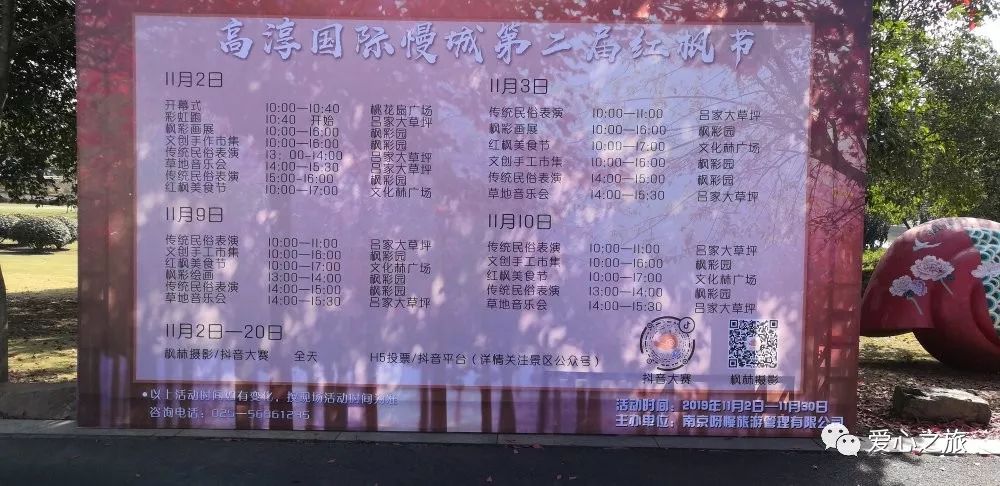 高淳国际慢城第二届红枫节
11月2日
开幕式 10:00—10:40 桃花岛广场
彩虹跑 10:40 开始 吕家大草坪
枫彩画展 10:00—16:00 枫彩园
文创手作市集 10:00—16:00 枫彩园
传统民俗表演 13:00—14:00 吕家大草坪
草地音乐会 14:00—15:30 吕家大草坪
传统民俗表演 15:00—16:00 枫彩园
红枫美食节 10:00—17:00 文化林广场
11月3日
传统民俗表演 10:00—11:00 吕家大草坪
枫彩画展 10:00—16:00 枫彩园
红枫美食节 10:00—17:00 文化林广场
文创手工市集 10:00—16:00 枫彩园
传统民俗表演 14:00—15:00 枫彩园
草地音乐会 14:00—15:30 吕家大草坪
11月9日
传统民俗表演 10:00—11:00 吕家大草坪
文创手工市集 10:00—16:00 枫彩园
红枫美食节 10:00—17:00 文化林广场
枫彩绘画 13:00—14:00 枫彩园
传统民俗表演 14:00—15:00 枫彩园
草地音乐会 14:00—15:30 吕家大草坪
11月10日
传统民俗表演 10:00—11:00 吕家大草坪
文创手工市集 10:00—16:00 枫彩园
红枫美食节 10:00—17:00 文化林广场
传统民俗表演 13:00—14:00 枫彩园
草地音乐会 14:00—15:30 吕家大草坪
11月2日—20日
枫林摄影/抖音大赛 全天 H5投票/抖音平台（详情关注景区公众号）
抖音大赛 枫林摄影
•以上活动时间如有变化，按现场活动时间为准
咨询电话：025-56861295
活动时间：2019年11月2日—11月30日
主办单位：南京呀慢旅游管理有限公司
爱心之旅